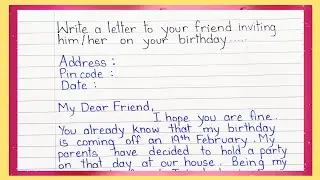 Write a letter to your friend inviting
him/her on your birthday.....
Address :
Pin code :
Date :
My Dear Friend,
I hope you are fine..
You already know that my birthday
is coming off an 19th February. My
parents have decided to hold a party
on that day at our house. Being my